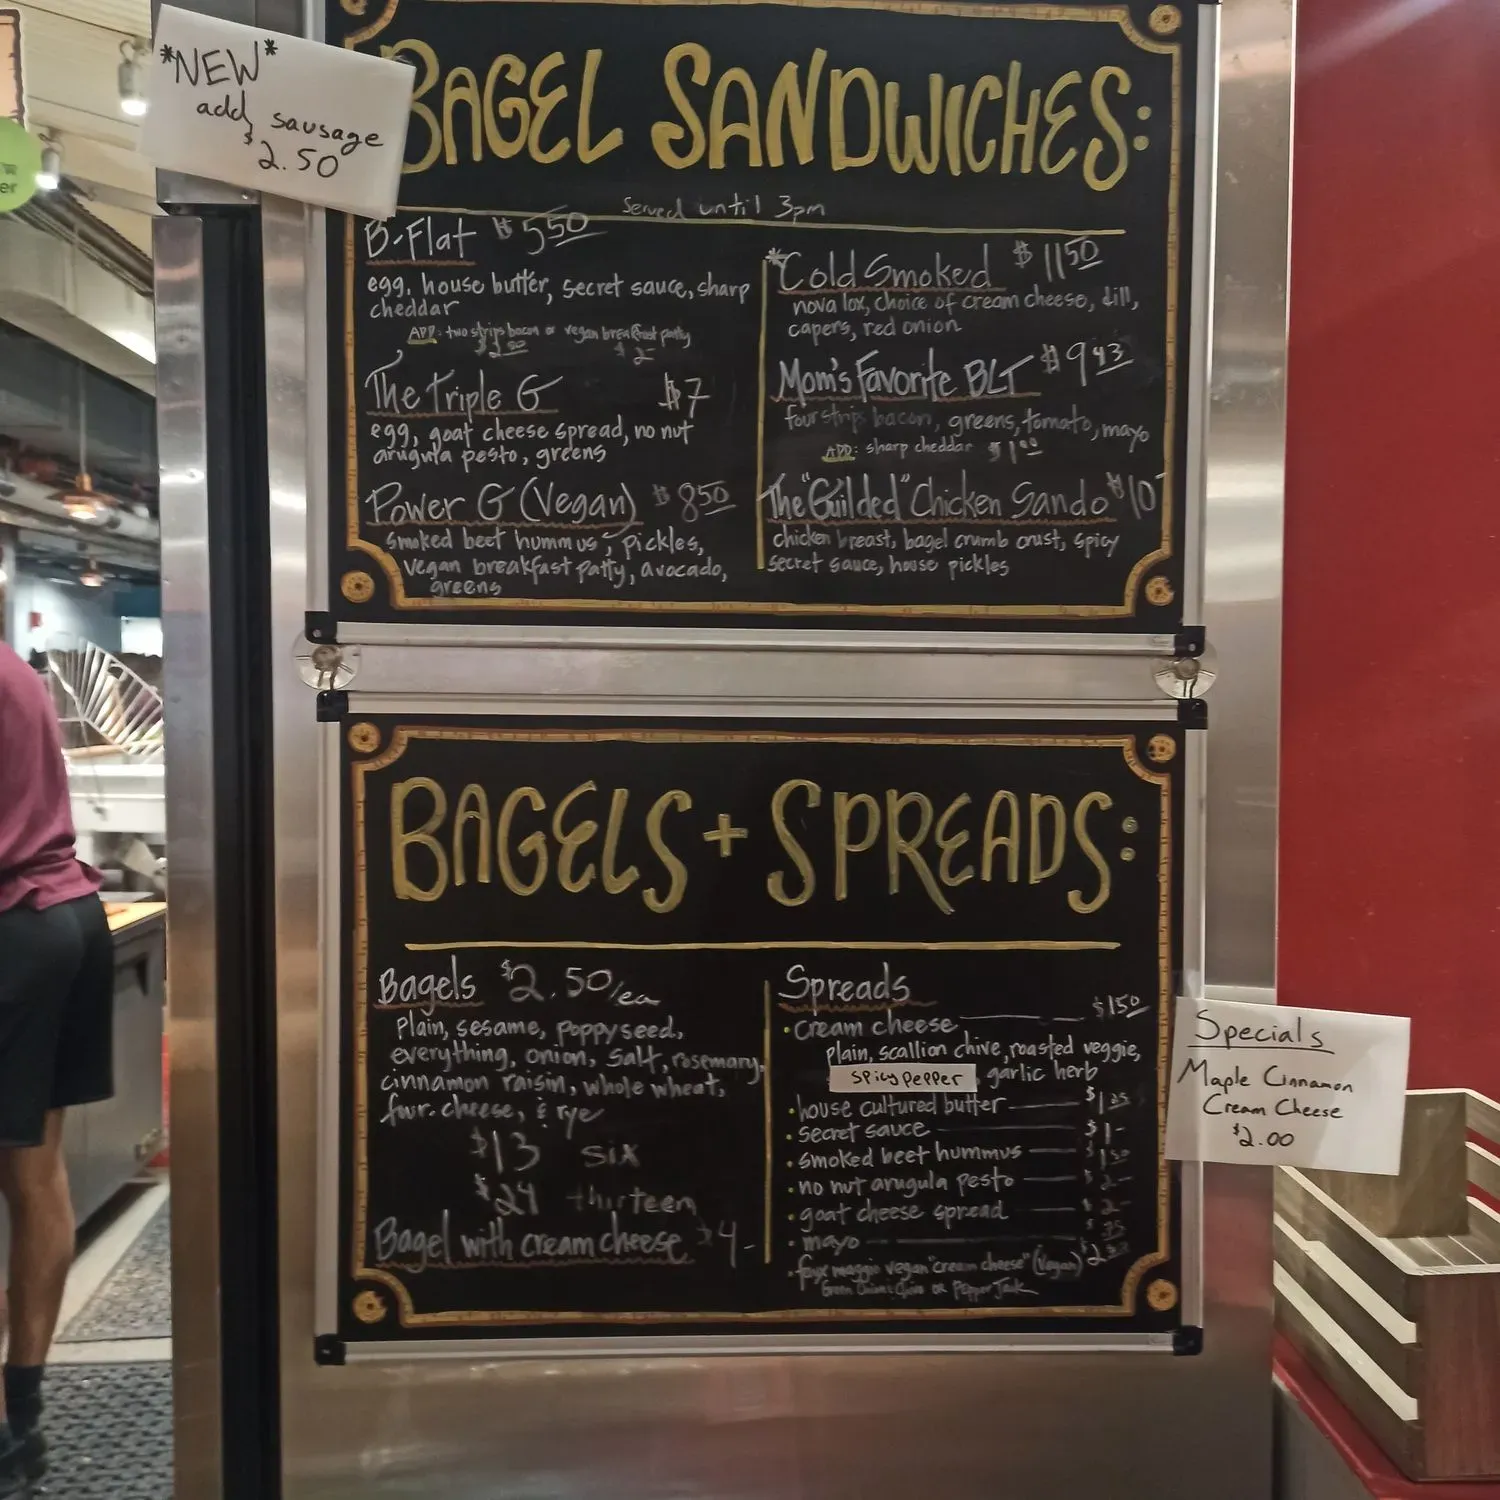 *NEW*
add sausage
$2.50
BAGEL SANDWICHES:
Served until 3pm
B-Flat $5.50
egg, house butter, secret sauce, sharp
cheddar
ADD: two strips bacon or vegan breakfast patty
$2
The Triple G $7
egg, goat cheese spread, no nut
arugula pesto, greens
Power G (Vegan) $8.50
smoked beet hummus, pickles,
vegan breakfast patty, avocado,
greens
*Cold Smoked $11.50
nova lox, choice of cream cheese, dill,
capers, red onion
Mom's Favorite BLT $9.43
four strips bacon, greens, tomato, mayo
ADD: sharp cheddar $1.00
The "Guilded" Chicken Sando $10
chicken breast, bagel crumb crust, spicy
secret sauce, house pickles
BAGELS + SPREADS:
Bagels $2.50/ea
Plain, sesame, poppyseed,
everything, onion, salt, rosemary,
cinnamon raisin, whole wheat,
four-cheese, & rye
$13 six
$24 thirteen
Bagel with cream cheese $4-
Spreads
•cream cheese $1.50
plain, scallion chive, roasted veggie,
spicy pepper, garlic herb
•house cultured butter $1.25
•secret sauce $1-
•smoked beet hummus $1.50
•no nut arugula pesto $2-
•goat cheese spread $2-
•mayo $.75
•faux maggio vegan "cream cheese" (Vegan)
or Pepper Jack
Specials
Maple Cinnamon
Cream Cheese
$2.00